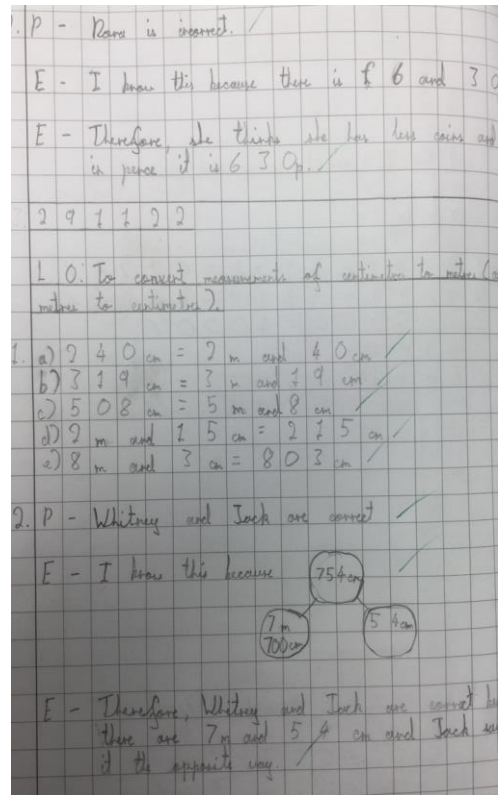 P - Rora is incorrect.
E - I know this because there is £ 6 and 3 0
E - Therefore, she thinks she has less coins and
in pence it is 6 3 0p.
2 9 1 1 2 2
L O: To convert measurements of centimetres to metres (
metres to centimetres).
1. a) 2 4 0 cm = 2 m and 4 0 cm
b) 3 1 9 cm = 3 m and 1 9 cm
c) 5 0 8 cm = 5 m and 8 cm
d) 2 m and 1 5 cm = 2 1 5 cm
e) 8 m and 3 cm = 8 0 3 cm
2. P - Whitney and Jack are correct
E - I know this because
754cm
7 m 5 4cm
700cm
E - Therefore, Whitney and Jack are correct
there are 7m and 5 4 cm and Jack
it the opposite way.